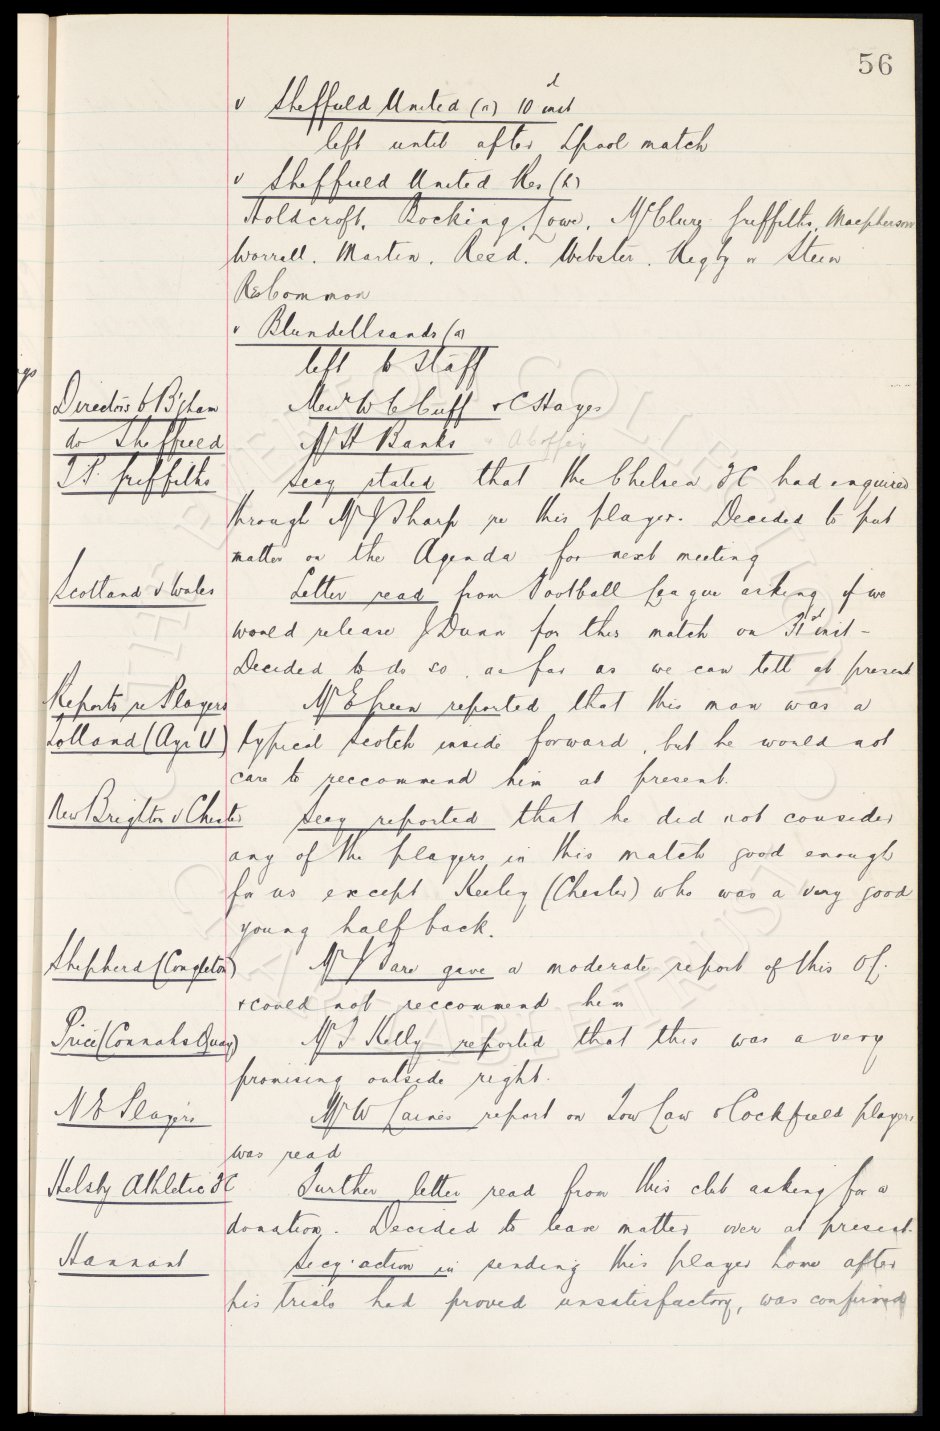 56
v Sheffield United (a) 10 inst
left until after Lpool match
v Sheffield United Res (h)
Holdcroft. Bocking. Lowe. McClure Griffiths. Macpherson
Worrall. Martin. Resd. Webster. Rigby or Stein
McCommon
v Blundellsands (a)
left to Staff
Directors to B'ham Messrs W C Cuff & C Hayes
do Sheffield Mr H Banks
T P. Griffiths Secy stated that the Chelsea FC had enquired
through Mr J Sharp re this player. Decided to put
matter on the Agenda for next meeting
Scotland v Wales Letter read from Football League asking if we
would release J Dunn for this match on 31st inst -
Decided to do so, as far as we can tell at present
Reports re Players Mr E Green reported that this man was a
Tolland (Ayr U) typical Scotch inside forward, but he would not
care to reccommend him at present.
New Brighton v Chester Secy reported that he did not consider
any of the players in this match good enough
for us except Keeley (Chester) who was a very good
young half back.
Shepherd (Congleton) Mr J Fare gave a moderate report of this OL.
& could not reccommend him
Price (Connahs Quay) Mr T Kelly reported that this was a very
promising outside right.
N E Players Mr W Caines report on Tow Law & Cockfield players
was read
Helsby Athletic FC Further letter read from this club asking for a
donation. Decided to leave matter over at present.
Hannant Secy' action in sending this player home after
his trials had proved unsatisfactory, was confirmed